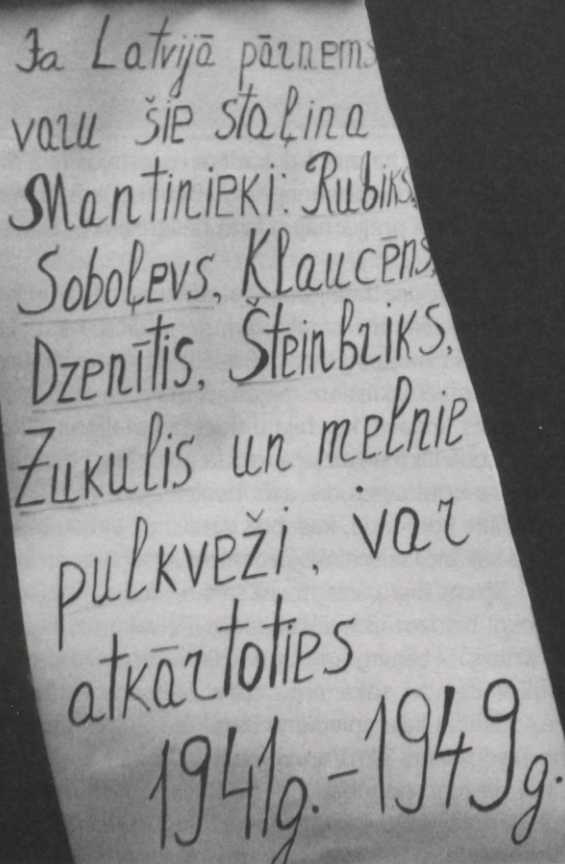 Ja Latvijā pārņems
varu šie staļina
Mantinieki: Rubiks,
Soboļevs, Klaucēns,
Dzenītis, Šteinbriks,
Žukulis un melnie
pulkveži, var
atkārtoties
1941g.-1949g.